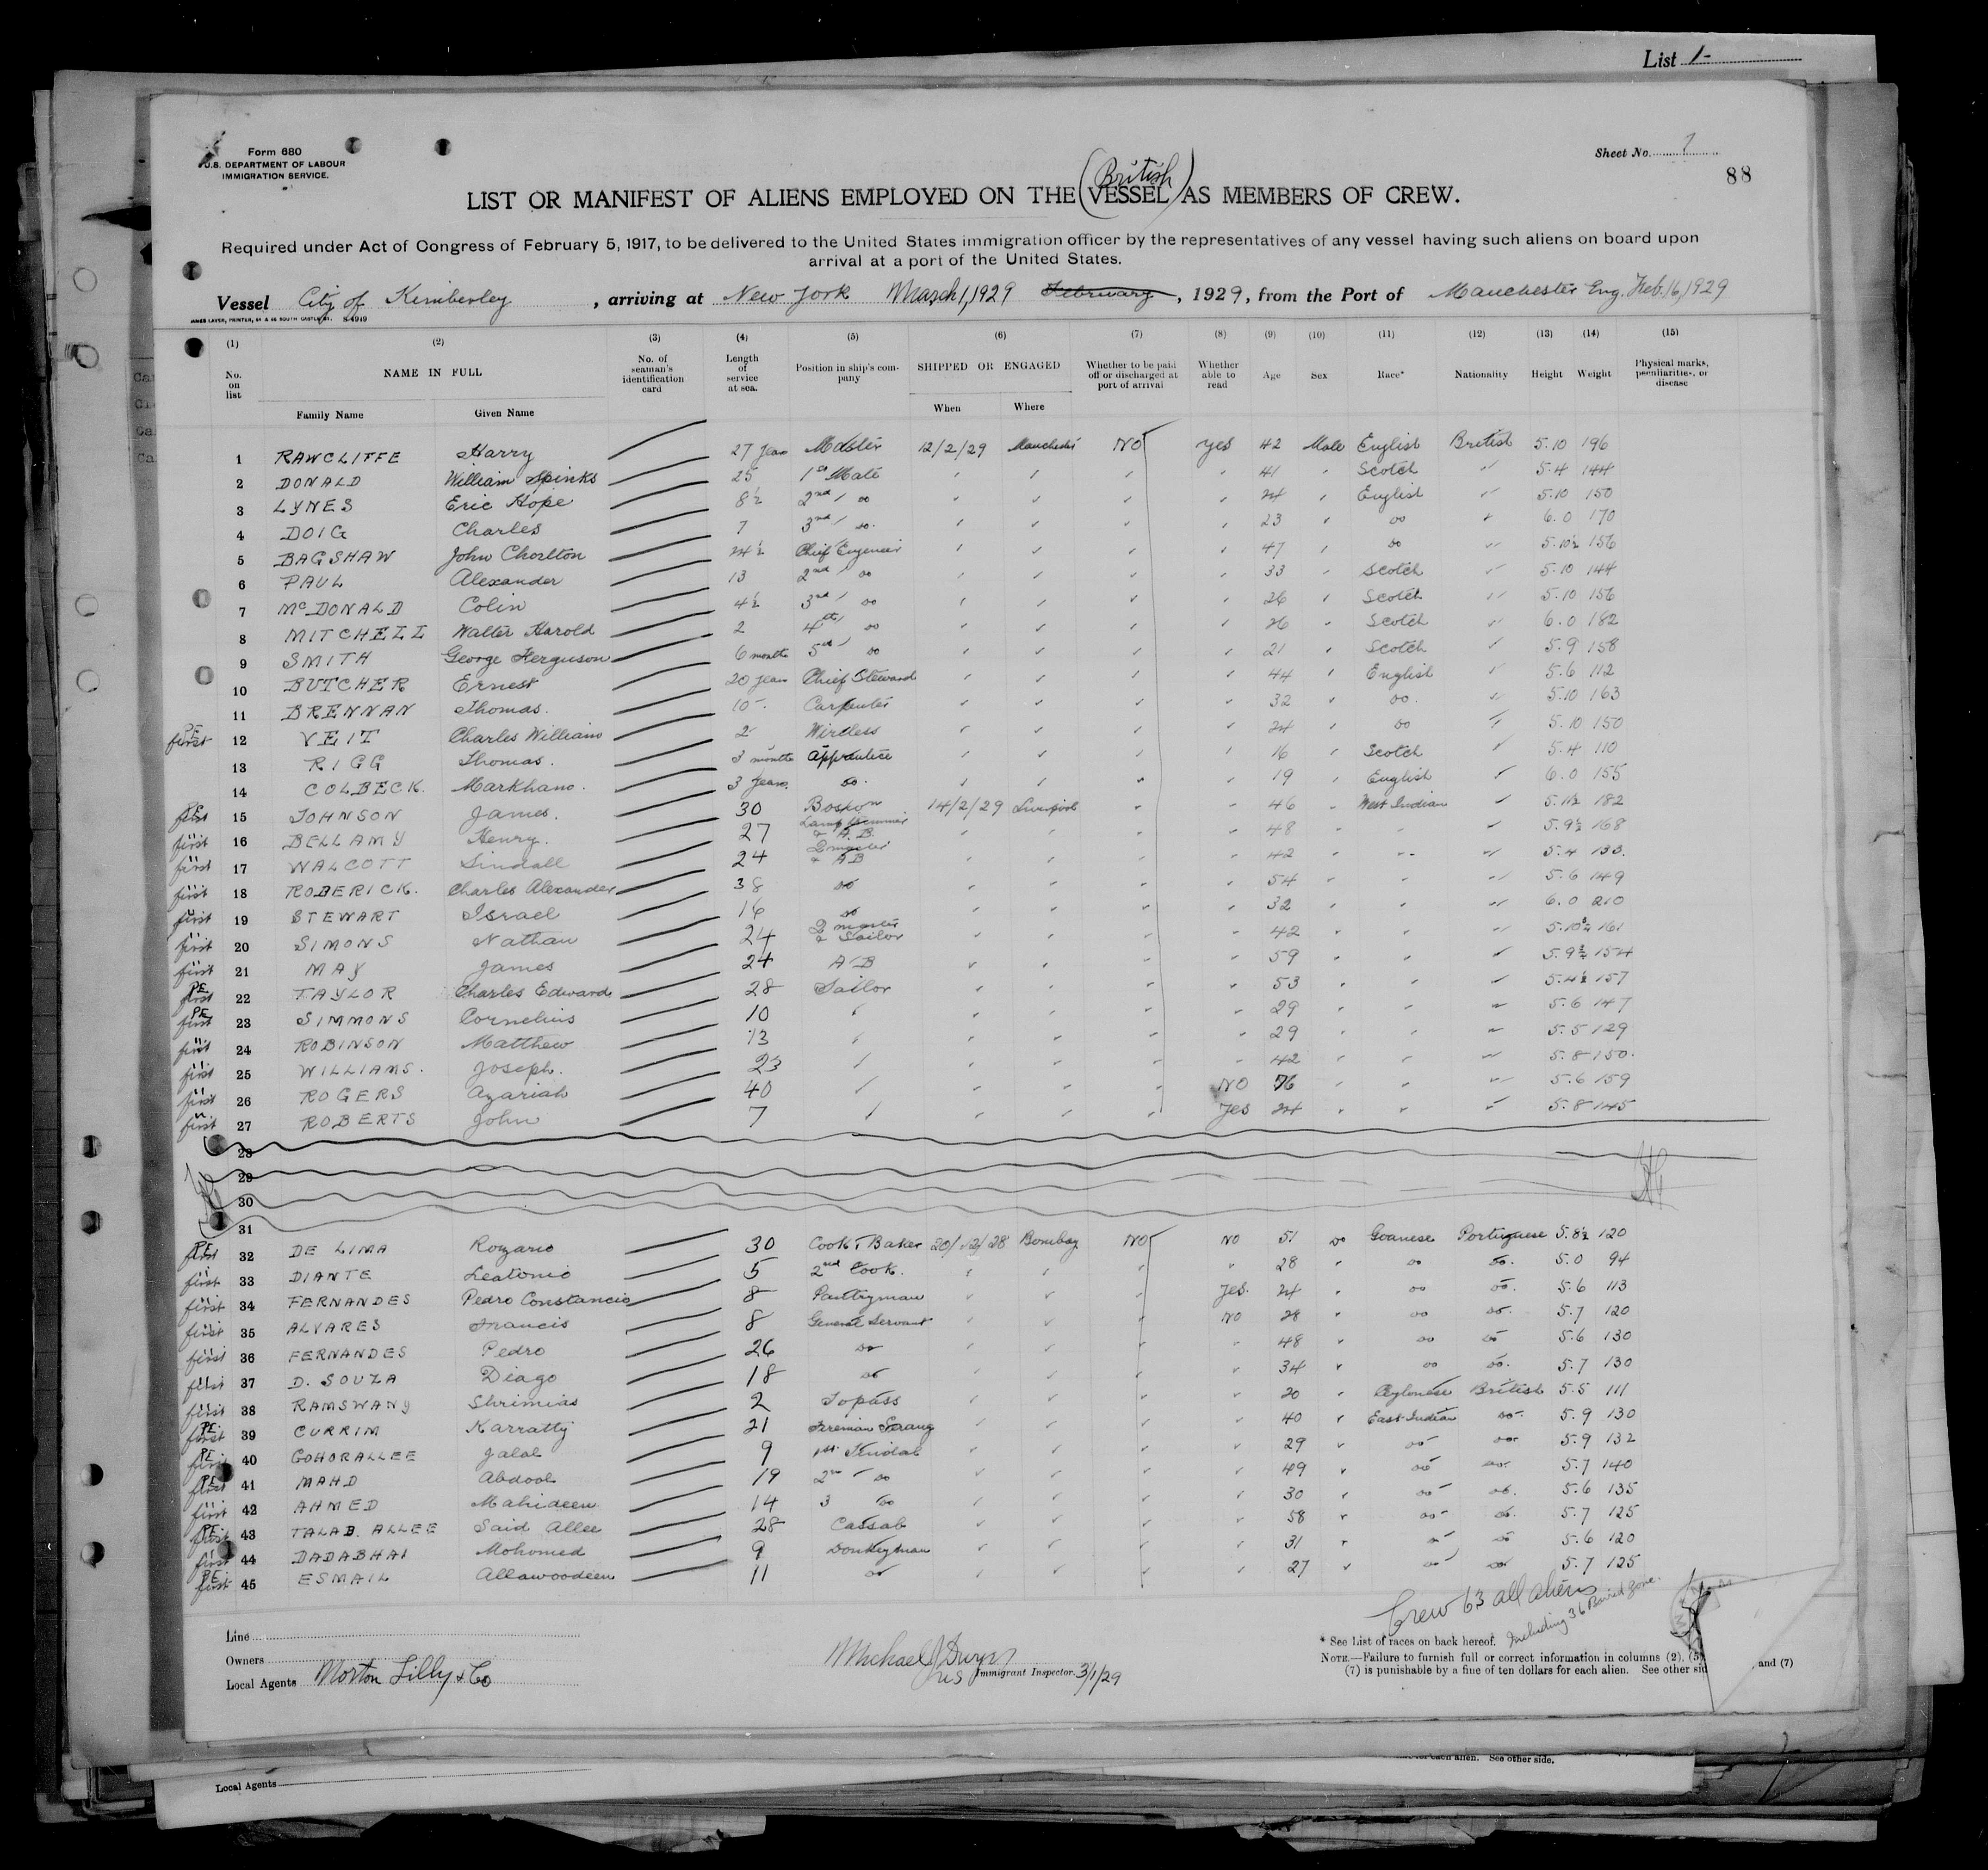 List 1-
Form 680
U.S. DEPARTMENT OF LABOUR
IMMIGRATION SERVICE.
Sheet No. 1
88
(British)
LIST OR MANIFEST OF ALIENS EMPLOYED ON THE VESSEL AS MEMBERS OF CREW.
Required under Act of Congress of February 5, 1917, to be delivered to the United States immigration officer by the representatives of any vessel having such aliens on board upon
arrival at a port of the United States.
Vessel City of Kimberley, arriving at New York March 1, 1929 February, 1929, from the Port of Manchester Eng. Feb. 16, 1929
(1) (2) (3) (4) (5) (6) (7) (8) (9) (10) (11) (12) (13) (14) (15)
No. on list NAME IN FULL Family Name Given Name No. of seaman's identification card Length of service at sea. Position in ship's company SHIPPED OR ENGAGED When Where Whether to be paid off or discharged at port of arrival Whether able to read Age Sex Race* Nationality Height Weight Physical marks, peculiarities, or disease
1 RAWCLIFFE Harry 27 years Master 12/2/29 Manchester NO Yes 42 Male English British 5.10 196
2 DONALD William Spinks 25 1st Mate 41 Scotch 5.4 144
3 LYNES Eric Hope 8½ 2nd do 24 English 5.10 150
4 DOIG Charles 7 3rd do. 23 do 6.0 170
5 BAGSHAW John Chorlton 24½ Chief Engineer 47 do 5.10½ 156
6 PAUL Alexander 13 2nd do 33 Scotch 5.10 144
7 McDONALD Colin 4½ 3rd do 26 Scotch 5.10 156
8 MITCHELL Walter Harold 2 4th do 26 Scotch 6.0 182
9 SMITH George Ferguson 6 months 5th do 21 Scotch 5.9 158
10 BUTCHER Ernest 20 years Chief Steward 44 English 5.6 112
11 BRENNAN Thomas. 10 Carpenter 32 do. 5.10 163
PE first 12 VEIT Charles William 2 Wireless 24 do 5.10 150
13 RIGG Thomas. 3 months Apprentice 16 Scotch 5.4 110
14 COLBECK. Markham. 3 years. do. 19 English 6.0 155
PE first 15 JOHNSON James. 30 Boson 14/2/29 Liverpool 46 West Indian 5.11½ 182
first 16 BELLAMY Henry. 27 Lamptrimmer & A.B. 48 5.9½ 168
first 17 WALCOTT Sindall 24 Q master & AB 42 5.4 133.
first 18 ROBERICK. Charles Alexander 38 do 54 5.6 149
first 19 STEWART Israel 16 do 32 6.0 210
first 20 SIMONS Nathan 24 Q master & Sailor 42 5.10½ 161
first 21 MAY James 24 A B 59 154
PE first 22 TAYLOR Charles Edward 28 Sailor 53 5.4½ 157
PE first 23 SIMMONS Cornelius 10 29 5.6 147
first 24 ROBINSON Matthew 13 29 5.5 129
first 25 WILLIAMS. Joseph. 23 42 5.8 150.
first 26 ROGERS Azariah 40 NO 76 5.6 159
first 27 ROBERTS John 7 Yes 24 5.8 145
28
29
30
31
PE first 32 DE LIMA Rozario 30 Cook & Baker 20/12/28 Bombay NO NO 51 do Goanese Portuguese 5.8½ 120
first 33 DIANTE Leatonio 5 2nd Cook. 28 do do. 5.0 94
first 34 FERNANDES Pedro Constancio 8 Pantryman Yes. 24 do do. 5.6 113
first 35 ALVARES Francis 8 General Servant NO 28 do do. 5.7 120
first 36 FERNANDES Pedro 26 do 48 do do 5.6 130
first 37 D. SOUZA Diago 18 do 34 do do. 5.7 130
first 38 RAMSWANY Shrimias 2 Topass 20 Ceylonese British 5.5 111
PE first 39 CURRIM Karratty 21 Fireman Serang 40 East Indian do. 5.9 130
PE first 40 GOHORALLEE Jalal 9 1st Tindal 29 do do 5.9 132
PE first 41 MAHD Abdool 19 2nd do 49 do do. 5.7 140
first 42 AHMED Mahideen 14 3 do 30 do do. 5.6 135
PE first 43 TALAB. ALLEE Said Allee 28 Cassab 58 do do. 5.7 125
first 44 DADABHAI Mohomed 9 Donkeyman 31 do do 5.6 120
PE first 45 ESMAIL Allawoodeen 11 do 27 do do 5.7 125
Crew 63 all aliens
Including 36 Barred Zone.
Line
Owners
Local Agents Morton Lilly & Co
Michael J Dwyer
Immigrant Inspector. 3/1/29
* See List of races on back hereof.
NOTE.—Failure to furnish full or correct information in columns (2), (5)
(7) is punishable by a fine of ten dollars for each alien. See other sid
and (7)
for each alien. See other side.
Local Agents